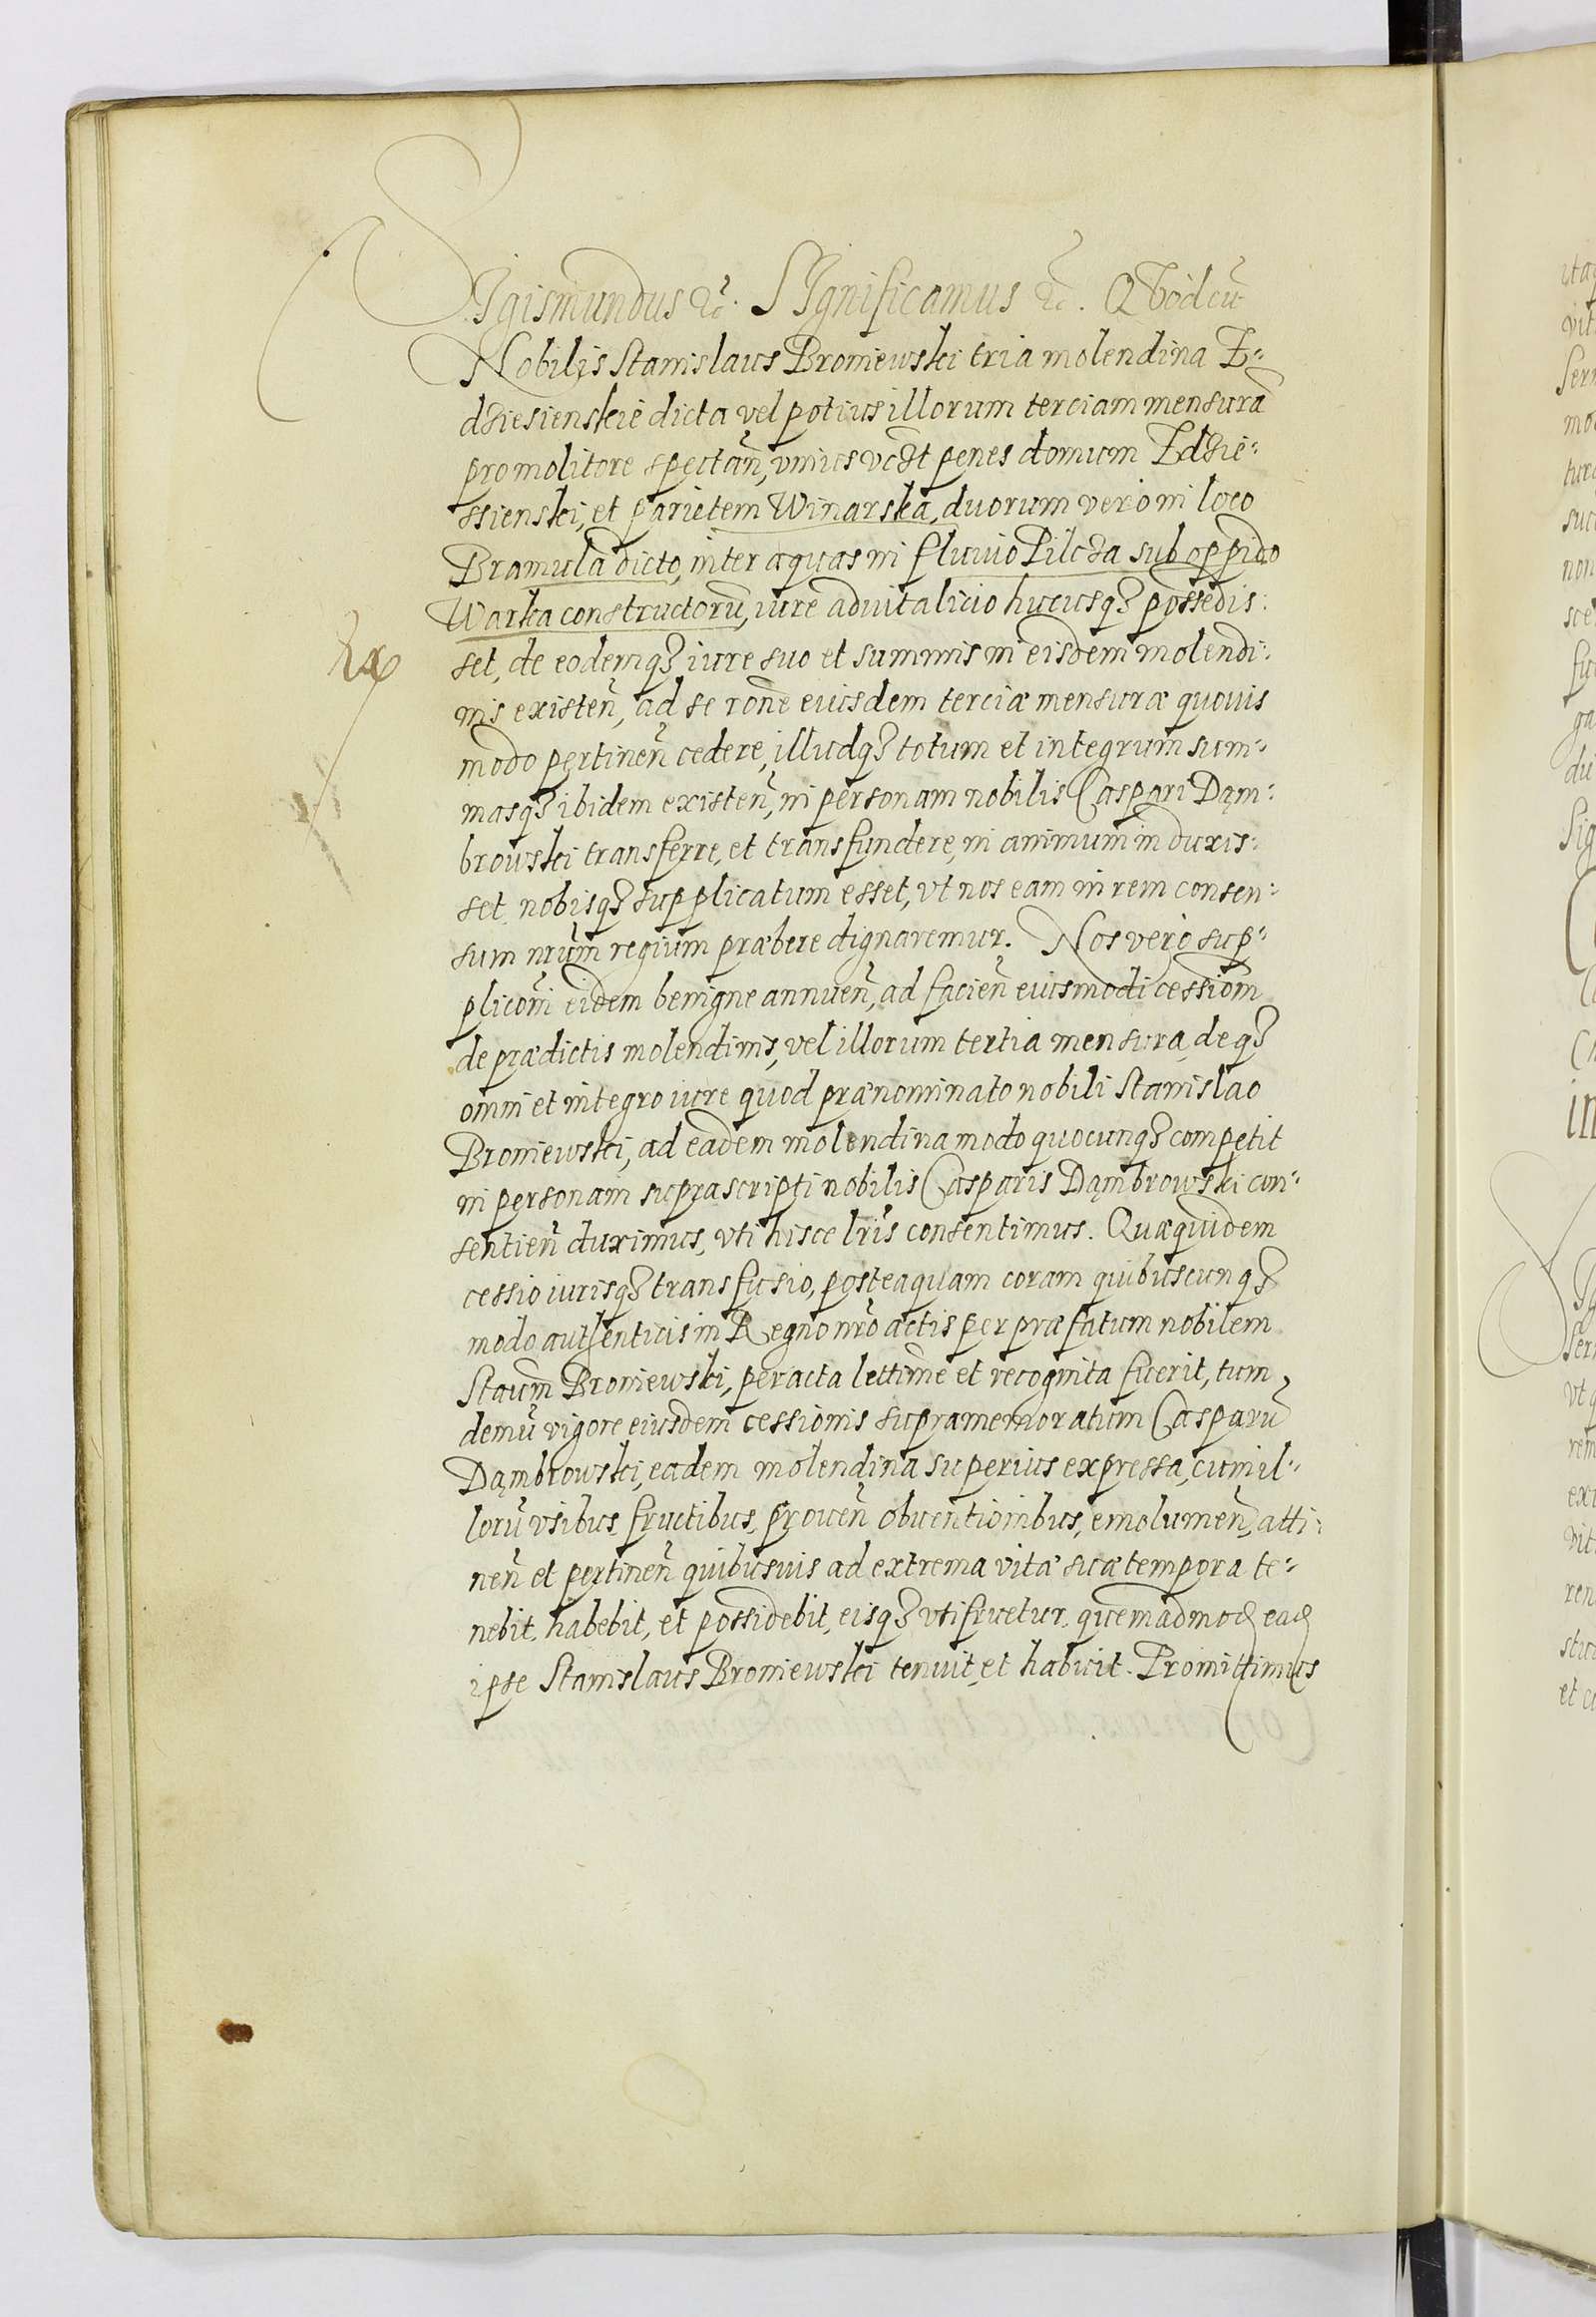 Sigismundus &c. SIgnificamus &c. QVod cũ
Nobilis Stanislaus Broniewski tria molendina Z-
dziesienskie dicta vel potius illorum terciam mensurã
pro molitore spectañ, vnius vczt penes domum Zdzie-
ssienski, et parietem Winarska, duorum vero in loco
Bramula dicto, inter aquas in fluuio Pilcza sub oppido
Warka constructorũ, iure aduitalicio hucusqȝ possedis-
set, de eodemqȝ iure suo et summis in eisdem molendi-
nis existeñ, ad se rone eiusdem terciæ mensuræ quouis
modo pertineñ cedere, illudqȝ totum et integrum sum-
masqȝ ibidem existeñ, in personam nobilis Caspari Dąm-
browski transferre, et transfundere, in animum induxis-
set, nobisqȝ supplicatum esset, vt nos eam in rem consen-
sum nrũm regium præbere dignaremur. Nos vero sup-
plicõni eidem benigne annueñ, ad facieñ eiusmodi cessiõm
de prædictis molendinis, vel illorum tertia mensura, deqȝ
omni et integro iure quod prænominato nobili Stanislao
Broniewski, ad eadem molendina modo quocunqȝ competit
in personam suprascripti nobilis Casparis Dąmbrowski con-
sentieñ duximus, vti hisce lr̃is consentimus. Quæquidem
cessio iurisqȝ transfusio, posteaquam coram quibuscunqȝ
modo authenticis in Regno nr̃o actis per præfatum nobilem
Staũm Broniewski, peracta lettime et recognita fuerit, tum
demũ vigore eiusdem cessionis supramemoratum Casparũ
Dąmbrowski, eadem molendina superius expressa, cum il-
lorũ vsibus, fructibus, proueñ obuentionibus, emolumeñ, atti-
neñ et pertineñ quibusuis ad extrema vitæ suæ tempora te-
nebit, habebit, et possidebit, eisqȝ vti fruetur, quemadmod ead
ipse Stanislaus Broniewski tenuit et habuit. Promittimus